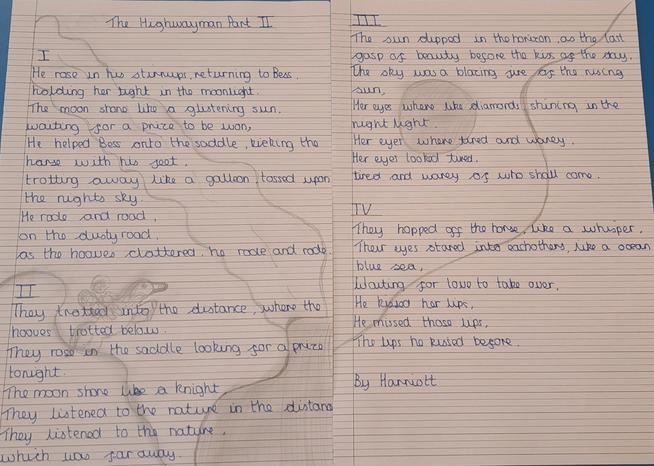 The Highwayman Part II
I
He rose in his stirrups, returning to Bess.
holding her tight in the moonlight.
The moon shone like a glistening sun.
waiting for a prize to be won,
He helped Bess onto the saddle, kicking the
horse with his feet.
trotting away like a galleon, tossed upon
the nights sky.
He rode and road,
on the dusty road,
as the hooves clattered. he rode and rode.
II
They trotted into the distance, where the
hooves trotted below.
They rose in the saddle looking for a prize
tonight.
The moon shone like a knight
They listened to the nature in the distanc
They listened to the nature,
which was far away.
III
The sun dipped in the horizon, as the last
gasp of beauty before the kiss of the day.
The sky was a blazing fire of the rising
sun,
Her eyes where like diamonds shining in the
night light.
Her eyes where tired and warey.
Her eyes looked tired.
tired and warey of who shall come.
IV
They hopped off the horse like a whisper,
Their eyes stared into eachothers, like a ocean
blue sea,
Waiting for love to take over,
He kissed her lips,
He missed those lips,
The lips he kissed before.
By Harriott